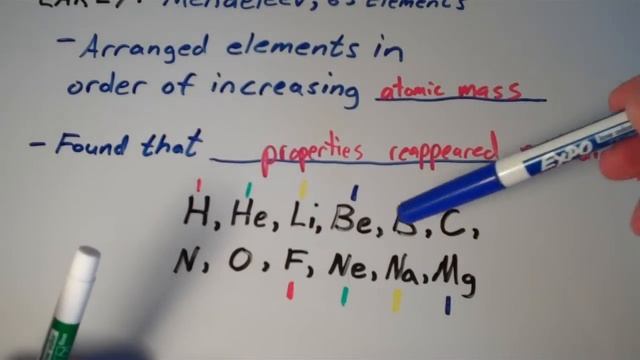 Mendeleev, 63 Elements
- Arranged elements in
order of increasing atomic mass
- Found that properties reappeared
H, He, Li, Be, B, C,
N, O, F, Ne, Na, Mg
EXPO